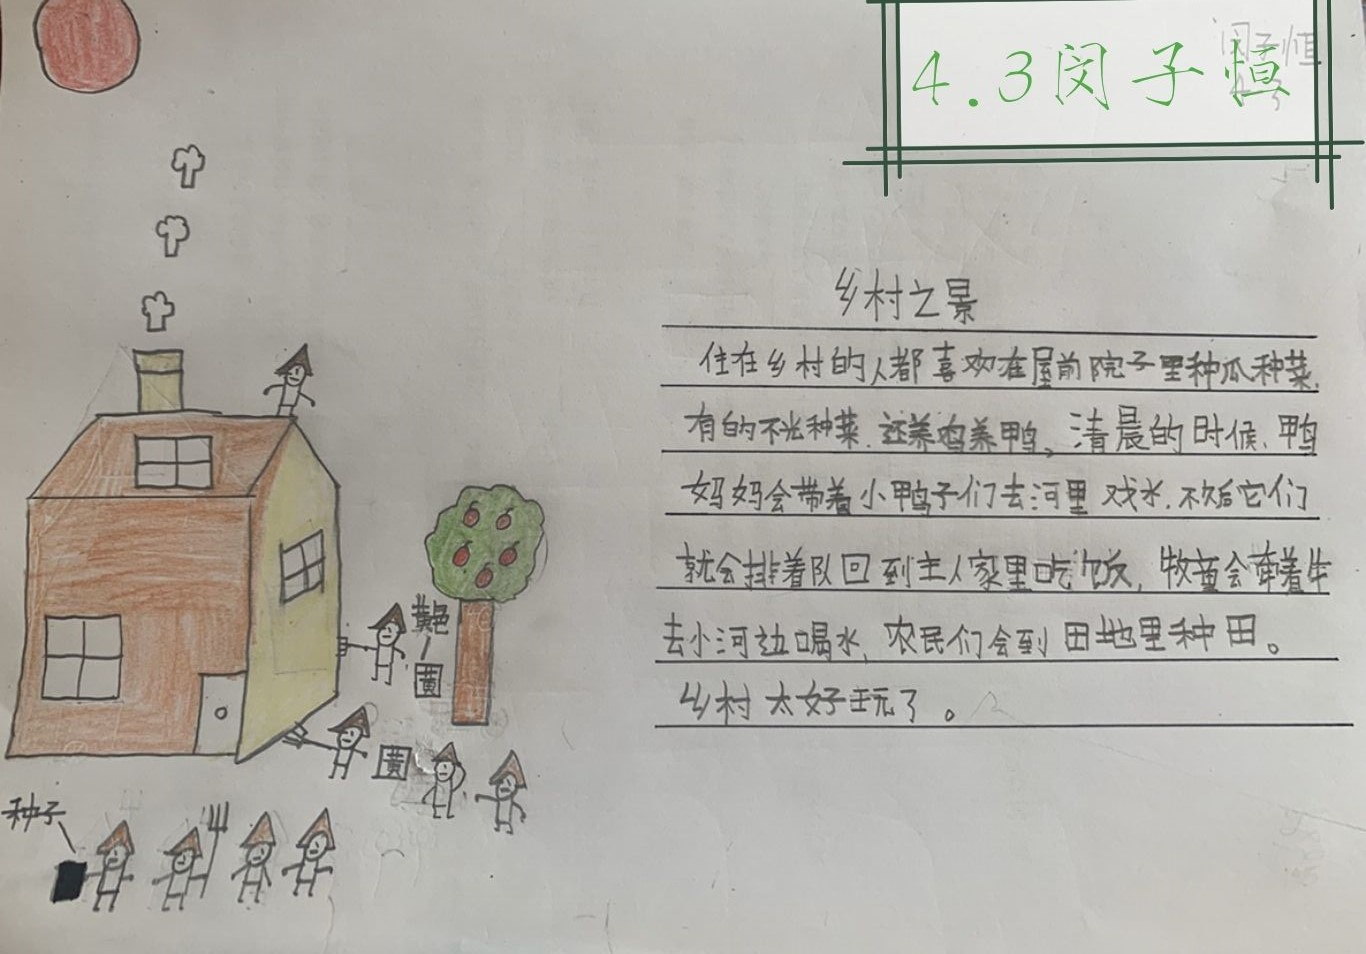 4.3闵子恒
闵子恒
4.3
乡村之景
住在乡村的人都喜欢在屋前院子里种瓜种菜,
有的不光种菜,还养鸡养鸭。清晨的时候、鸭
妈妈会带着小鸭子们去河里戏水,不然后它们
就会排着队回到主人家里吃饭,牧童会牵着牛
去小河边喝水,农民们会到田地里种田。
乡村太好玩了。
黄色
黄
黄
种子